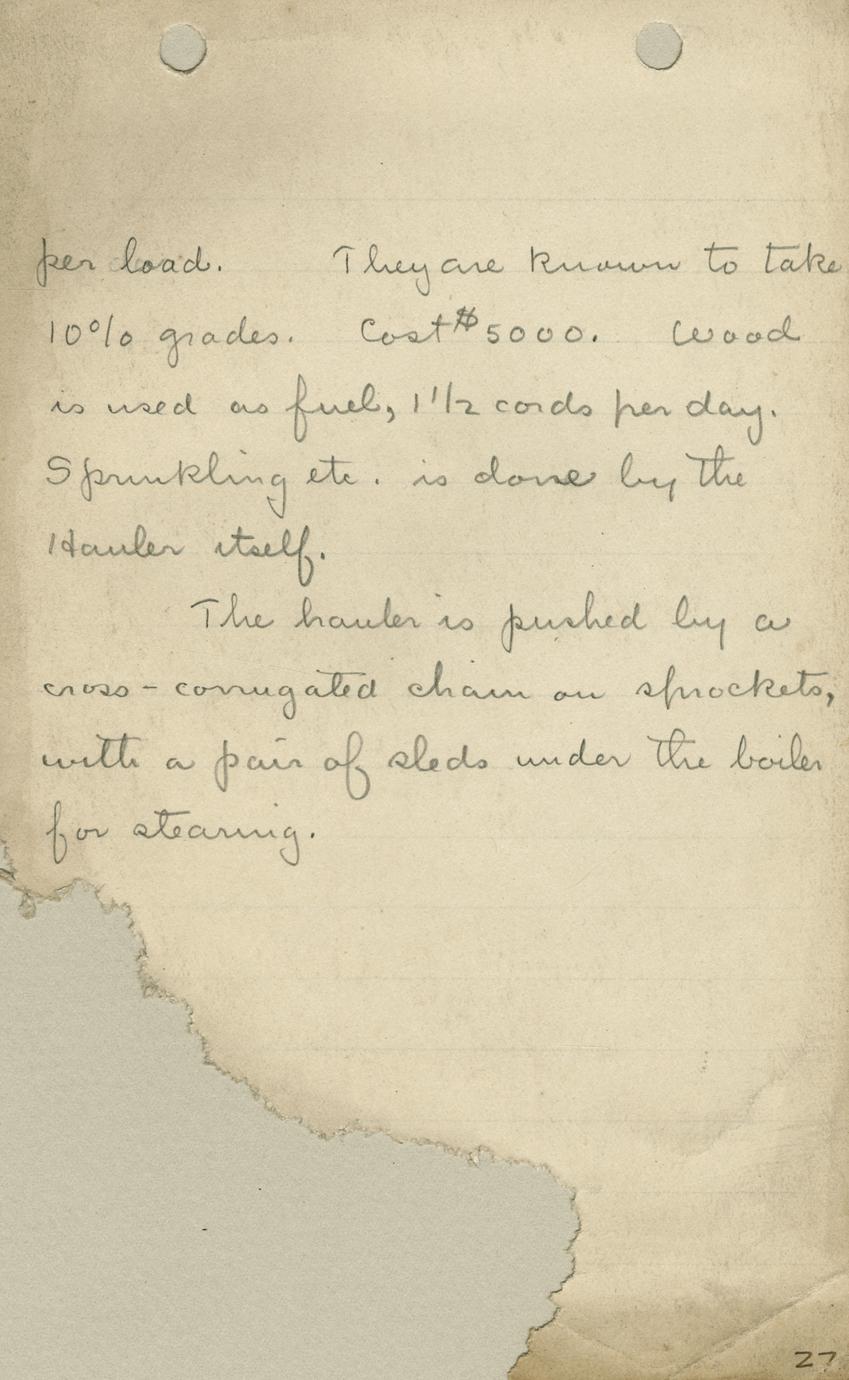 per load. They are known to take
10% grades. Cost $5000. Wood
is used as fuel, 1 1/2 cords per day.
Sprinkling etc. is done by the
Hauler itself.
The hauler is pushed by a
cross-corrugated chain on sprockets,
with a pair of sleds under the boiler
for stearing.
27